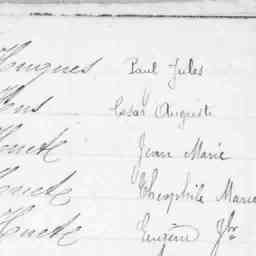 Hugues Paul Jules
Hus Cesar Auguste
Huet Jean Marie
Huet Théophile Marie
Huet Eugène Jh